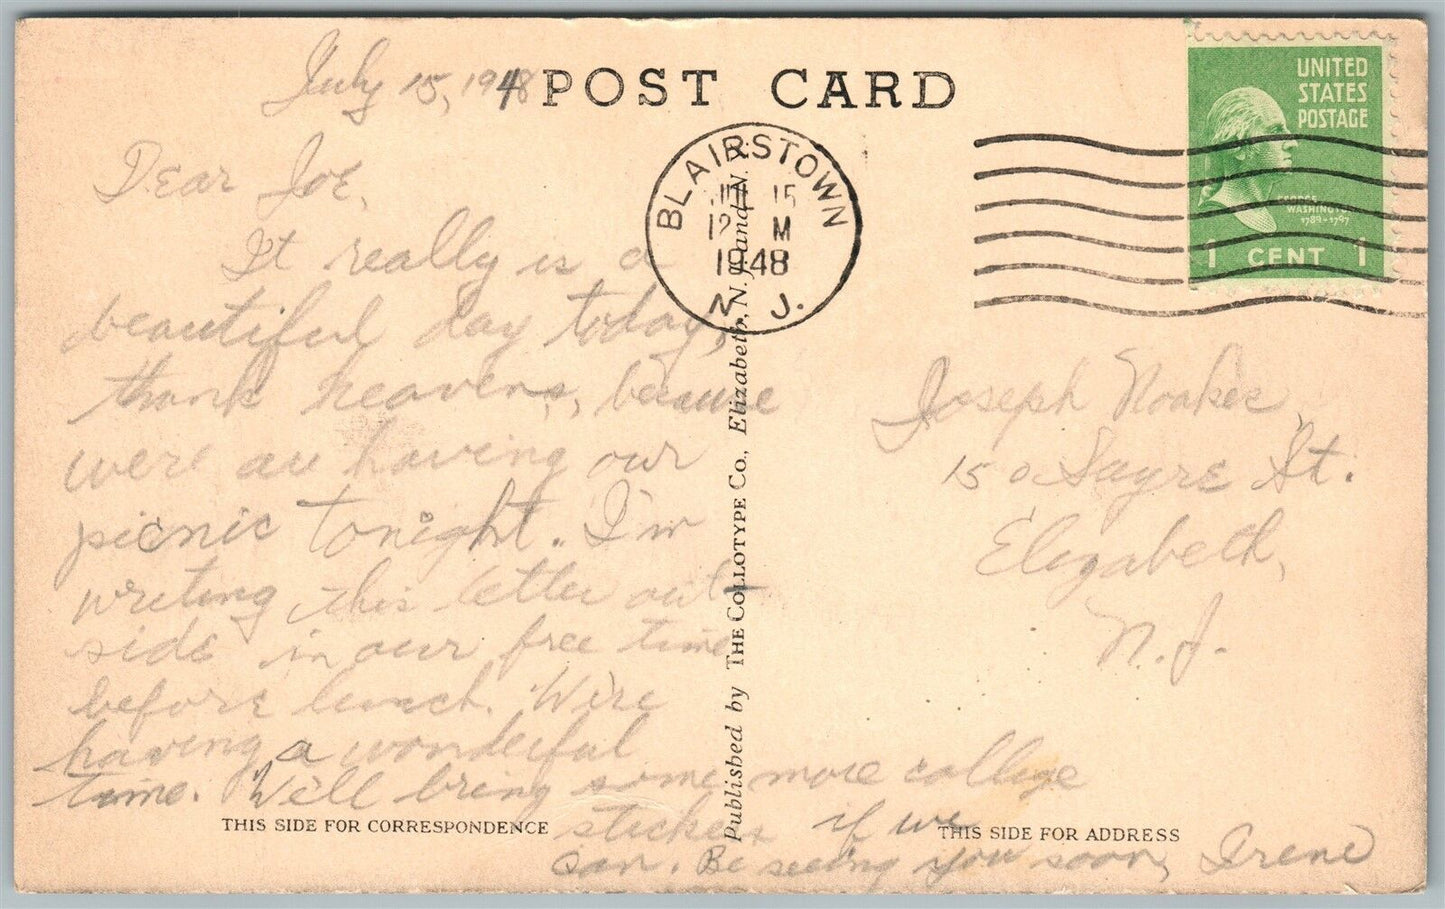 July 15, 1948
POST CARD
UNITED
STATES
POSTAGE
GEORGE
WASHINGTON
1789-1797
1 CENT 1
BLAIRSTOWN
JUL 15
12 M
1948
N. J.
Dear Joe,
It really is a
beautiful day today,
thank heavens, because
were all having our
picnic tonight. I'm
writing this letter out-
side in our free time
before lunch. We're
having a wonderful
time. We'll bring some more college
stickers if we
can. Be seeing you soon, Irene
Joseph Noakes,
150 Sayre St.
Elizabeth,
N.J.
Published by THE COLLOTYPE Co., Elizabeth, N. J. and N.
THIS SIDE FOR CORRESPONDENCE
THIS SIDE FOR ADDRESS